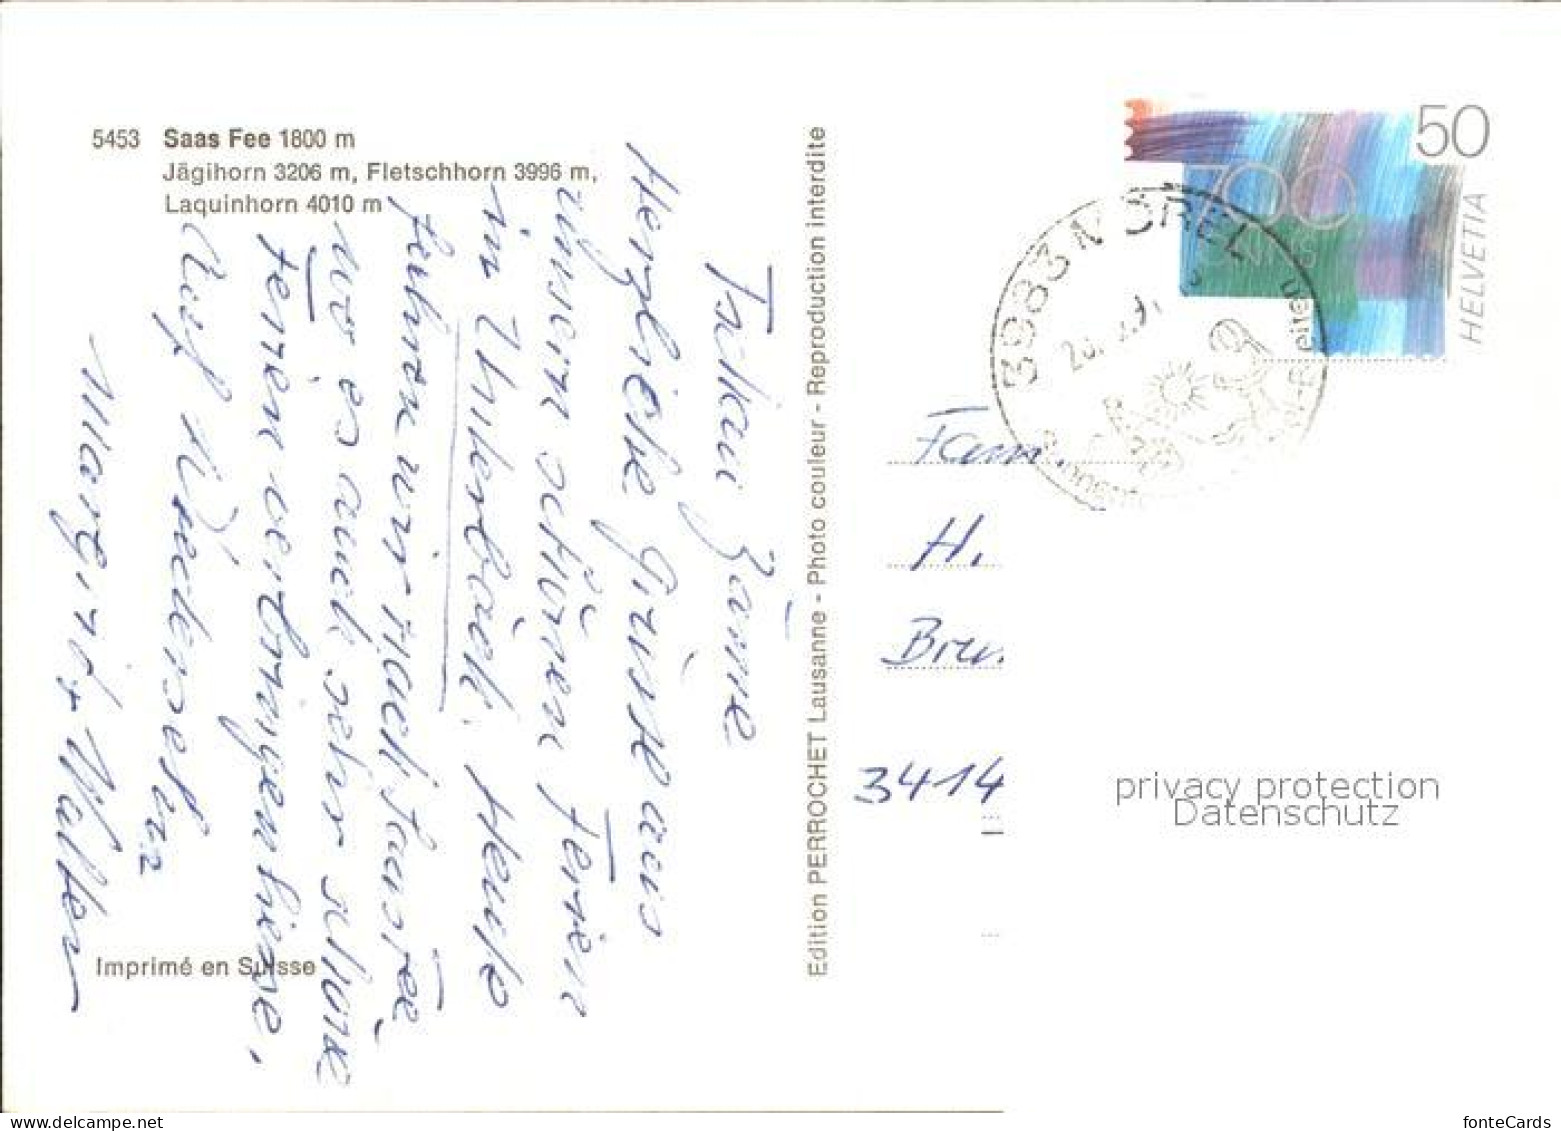 5453 Saas Fee 1800 m
Jägihorn 3206 m, Fletschhorn 3996 m,
Laquinhorn 4010 m
Herzliche Grüsse aus
unsern schönen Ferien
in Unterbäch. Heute
fahren wir nach Saas Fee
wo es auch sehr schöne
Ferien verbringen liesse.
Auf Wiedersehn
Margrit + Walter
Imprimé en Suisse
Edition PERROCHET Lausanne - Photo couleur - Reproduction interdite
50
700
HELVETIA
3983 MÖREL
Fam.
H.
3414
privacy protection
Datenschutz
delcampe.net
fonteCards